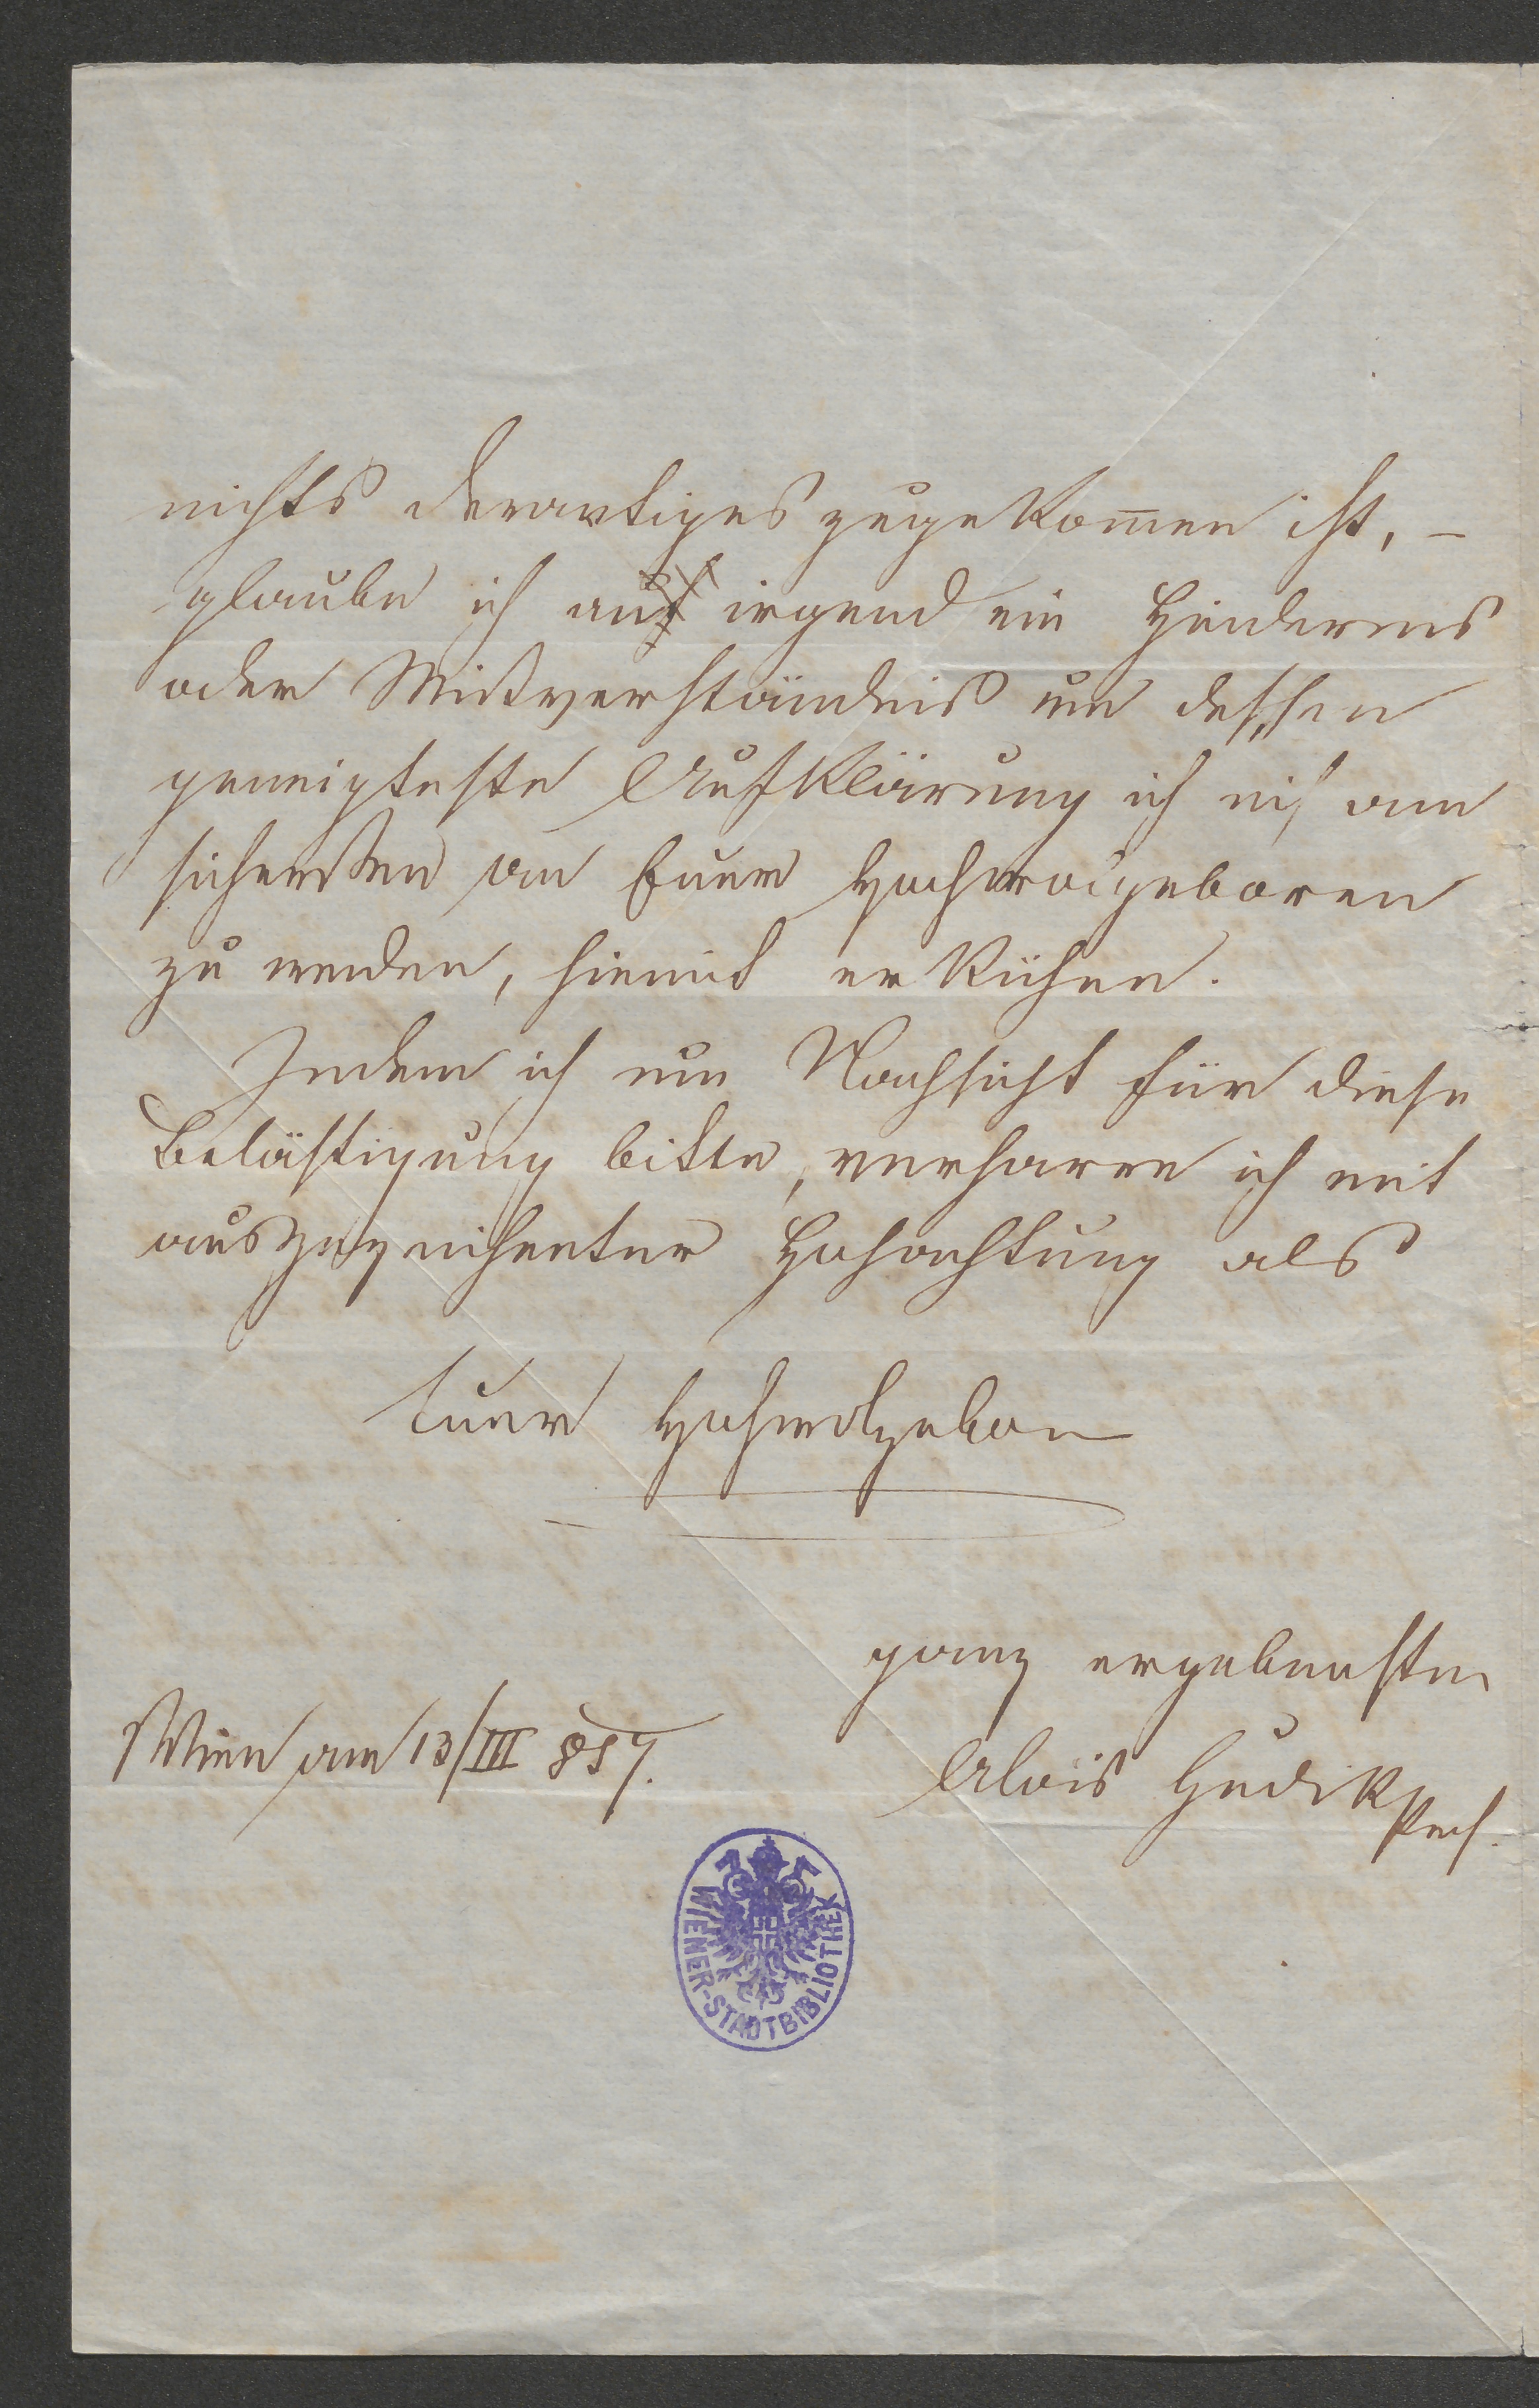 nichts derartiges zugekom̄en ist, –
glaube ich an irgend ein Hinderniß
oder Mißverständniß um dessen
geneigteste Aufklärung ich mich am
sichersten an Euer Hochwolgeboren
zu wenden, hiemit erkühne.
Indem ich um Nachsicht für diese
Belästigung bitte, verharre ich mit
ausgezeichneter Hochachtung als
Euer Hochwolgeboren
ganz ergebenster
Wien am 13/III 857.
Alois
WIENER-STADTBIBLIOTHEK